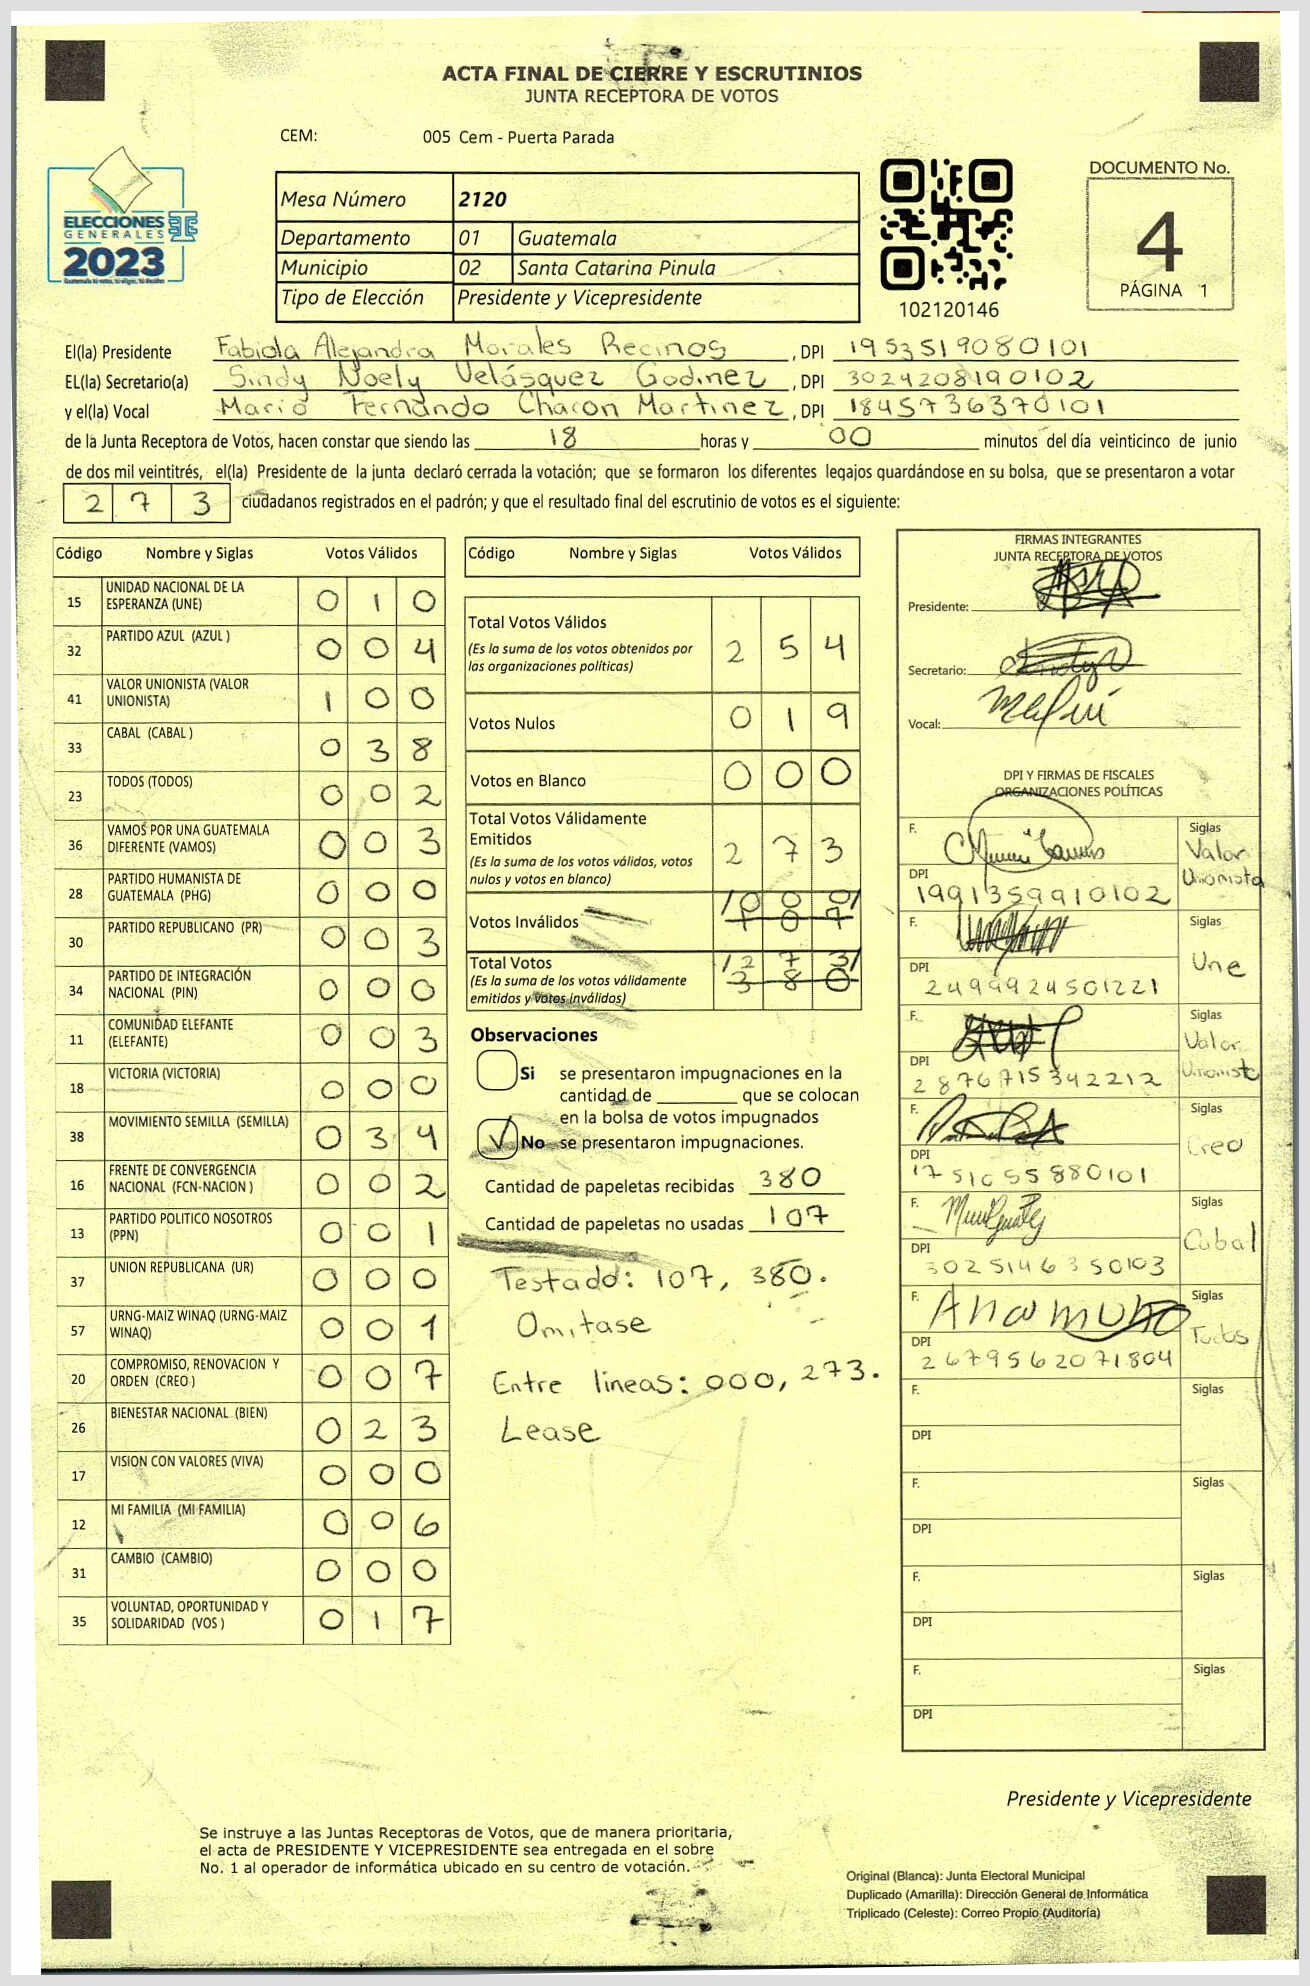 ACTA FINAL DE CIERRE Y ESCRUTINIOS
JUNTA RECEPTORA DE VOTOS
CEM: 005 Cem - Puerta Parada
ELECCIONES
GENERALES
2023
Mesa Número 2120
Departamento 01 Guatemala
Municipio 02 Santa Catarina Pinula
Tipo de Elección Presidente y Vicepresidente
102120146
DOCUMENTO No.
4
PÁGINA 1
El(la) Presidente Fabiola Alejandra Morales Recinos, DPI 1953519080101
EL(la) Secretario(a) Sindy Noely Velásquez Godinez, DPI 3024208190102
y el(la) Vocal Mario Fernando Chacon Martinez, DPI 1845736370101
de la Junta Receptora de Votos, hacen constar que siendo las 18 horas y 00 minutos del día veinticinco de junio
de dos mil veintitrés, el(la) Presidente de la junta declaró cerrada la votación; que se formaron los diferentes legajos guardándose en su bolsa, que se presentaron a votar
2 7 3 ciudadanos registrados en el padrón; y que el resultado final del escrutinio de votos es el siguiente:
Código Nombre y Siglas Votos Válidos
15 UNIDAD NACIONAL DE LA ESPERANZA (UNE) 0 1 0
32 PARTIDO AZUL (AZUL ) 0 0 4
41 VALOR UNIONISTA (VALOR UNIONISTA) 1 0 0
33 CABAL (CABAL ) 0 3 8
23 TODOS (TODOS) 0 0 2
36 VAMOS POR UNA GUATEMALA DIFERENTE (VAMOS) 0 0 3
28 PARTIDO HUMANISTA DE GUATEMALA (PHG) 0 0 0
30 PARTIDO REPUBLICANO (PR) 0 0 3
34 PARTIDO DE INTEGRACIÓN NACIONAL (PIN) 0 0 0
11 COMUNIDAD ELEFANTE (ELEFANTE) 0 0 3
18 VICTORIA (VICTORIA) 0 0 0
38 MOVIMIENTO SEMILLA (SEMILLA) 0 3 4
16 FRENTE DE CONVERGENCIA NACIONAL (FCN-NACION ) 0 0 2
13 PARTIDO POLITICO NOSOTROS (PPN) 0 0 1
37 UNION REPUBLICANA (UR) 0 0 0
57 URNG-MAIZ WINAQ (URNG-MAIZ WINAQ) 0 0 1
20 COMPROMISO, RENOVACION Y ORDEN (CREO ) 0 0 7
26 BIENESTAR NACIONAL (BIEN) 0 2 3
17 VISION CON VALORES (VIVA) 0 0 0
12 MI FAMILIA (MI FAMILIA) 0 0 6
31 CAMBIO (CAMBIO) 0 0 0
35 VOLUNTAD, OPORTUNIDAD Y SOLIDARIDAD (VOS ) 0 1 7
Código Nombre y Siglas Votos Válidos
Total Votos Válidos 2 5 4
(Es la suma de los votos obtenidos por
las organizaciones políticas)
Votos Nulos 0 1 9
Votos en Blanco 0 0 0
Total Votos Válidamente
Emitidos 2 7 3
(Es la suma de los votos válidos, votos
nulos y votos en blanco)
/0 0 0/
Votos Inválidos 1 0 7
Total Votos /2 7 3/
(Es la suma de los votos válidamente 3 8 0
emitidos y votos inválidos)
Observaciones
Si se presentaron impugnaciones en la
cantidad de ________ que se colocan
en la bolsa de votos impugnados
No se presentaron impugnaciones.
Cantidad de papeletas recibidas 380
Cantidad de papeletas no usadas 107
Testado: 107, 380.
Omitase
Entre lineas: 000, 273.
Lease
FIRMAS INTEGRANTES
JUNTA RECEPTORA DE VOTOS
Presidente:
Secretario:
Vocal:
DPI Y FIRMAS DE FISCALES
ORGANIZACIONES POLÍTICAS
F. Siglas Valor Unionista
DPI 1991359910102
F. Siglas Une
DPI 2499924501221
F. Siglas Valor Unionista
DPI 2876715342212
F. Siglas Creo
DPI 1751055880101
F. Siglas Cabal
DPI 3025146350103
F. Siglas Todos
DPI 2679562071804
F. Siglas
DPI
F. Siglas
DPI
F. Siglas
DPI
F. Siglas
DPI
Presidente y Vicepresidente
Se instruye a las Juntas Receptoras de Votos, que de manera prioritaria,
el acta de PRESIDENTE Y VICEPRESIDENTE sea entregada en el sobre
No. 1 al operador de informática ubicado en su centro de votación.
Original (Blanca): Junta Electoral Municipal
Duplicado (Amarilla): Dirección General de Informática
Triplicado (Celeste): Correo Propio (Auditoría)